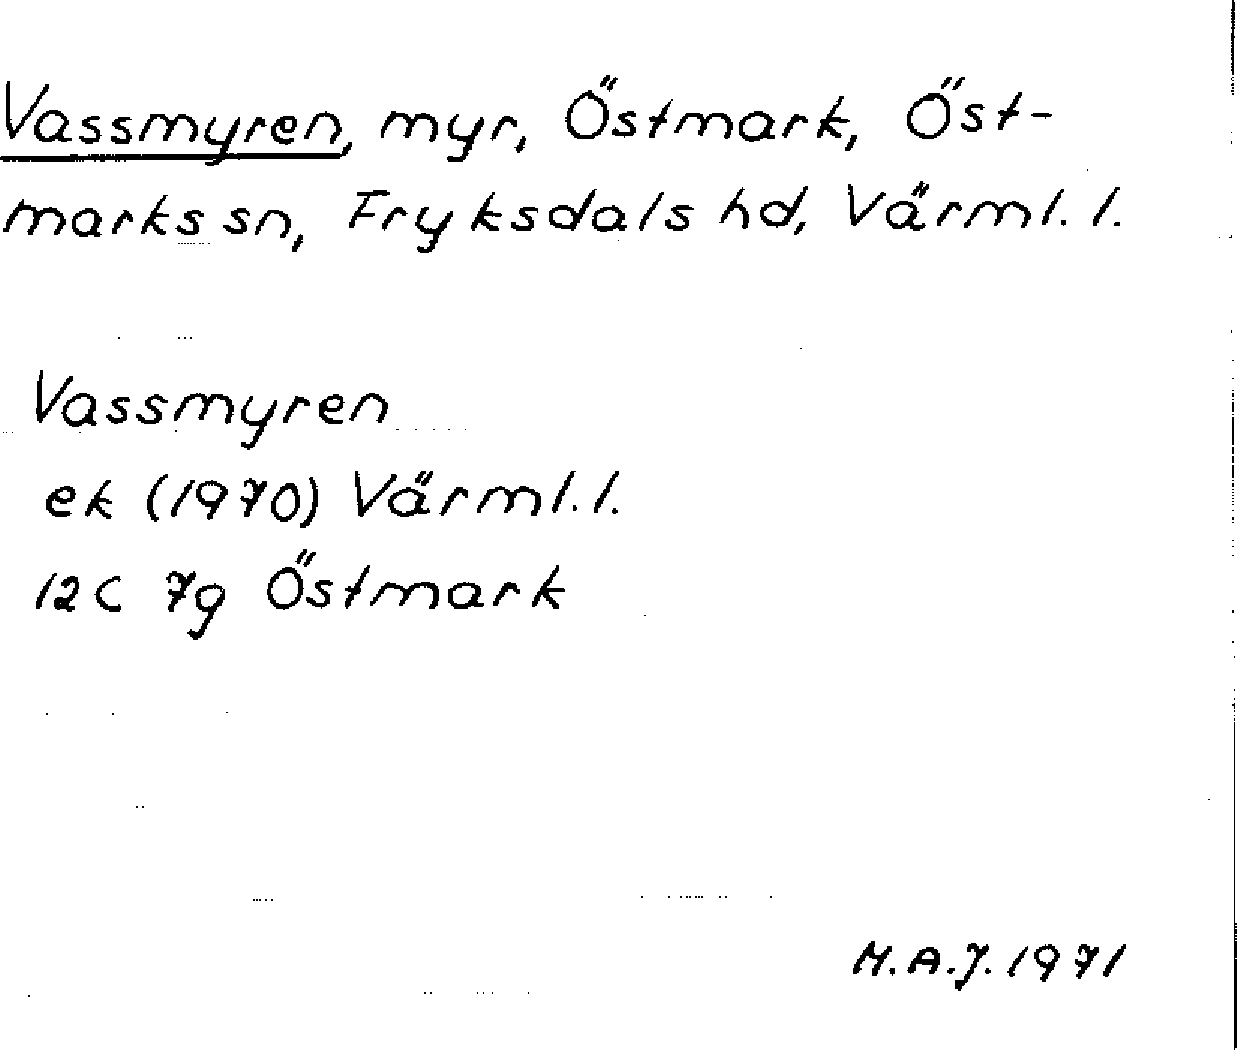 Vassmyren, myr, Östmark, Öst-
marks sn, Fryksdals hd, Värml. l.
Vassmyren
ek (1970) Värml. l.
12C 7g Östmark
M.A.J. 1971